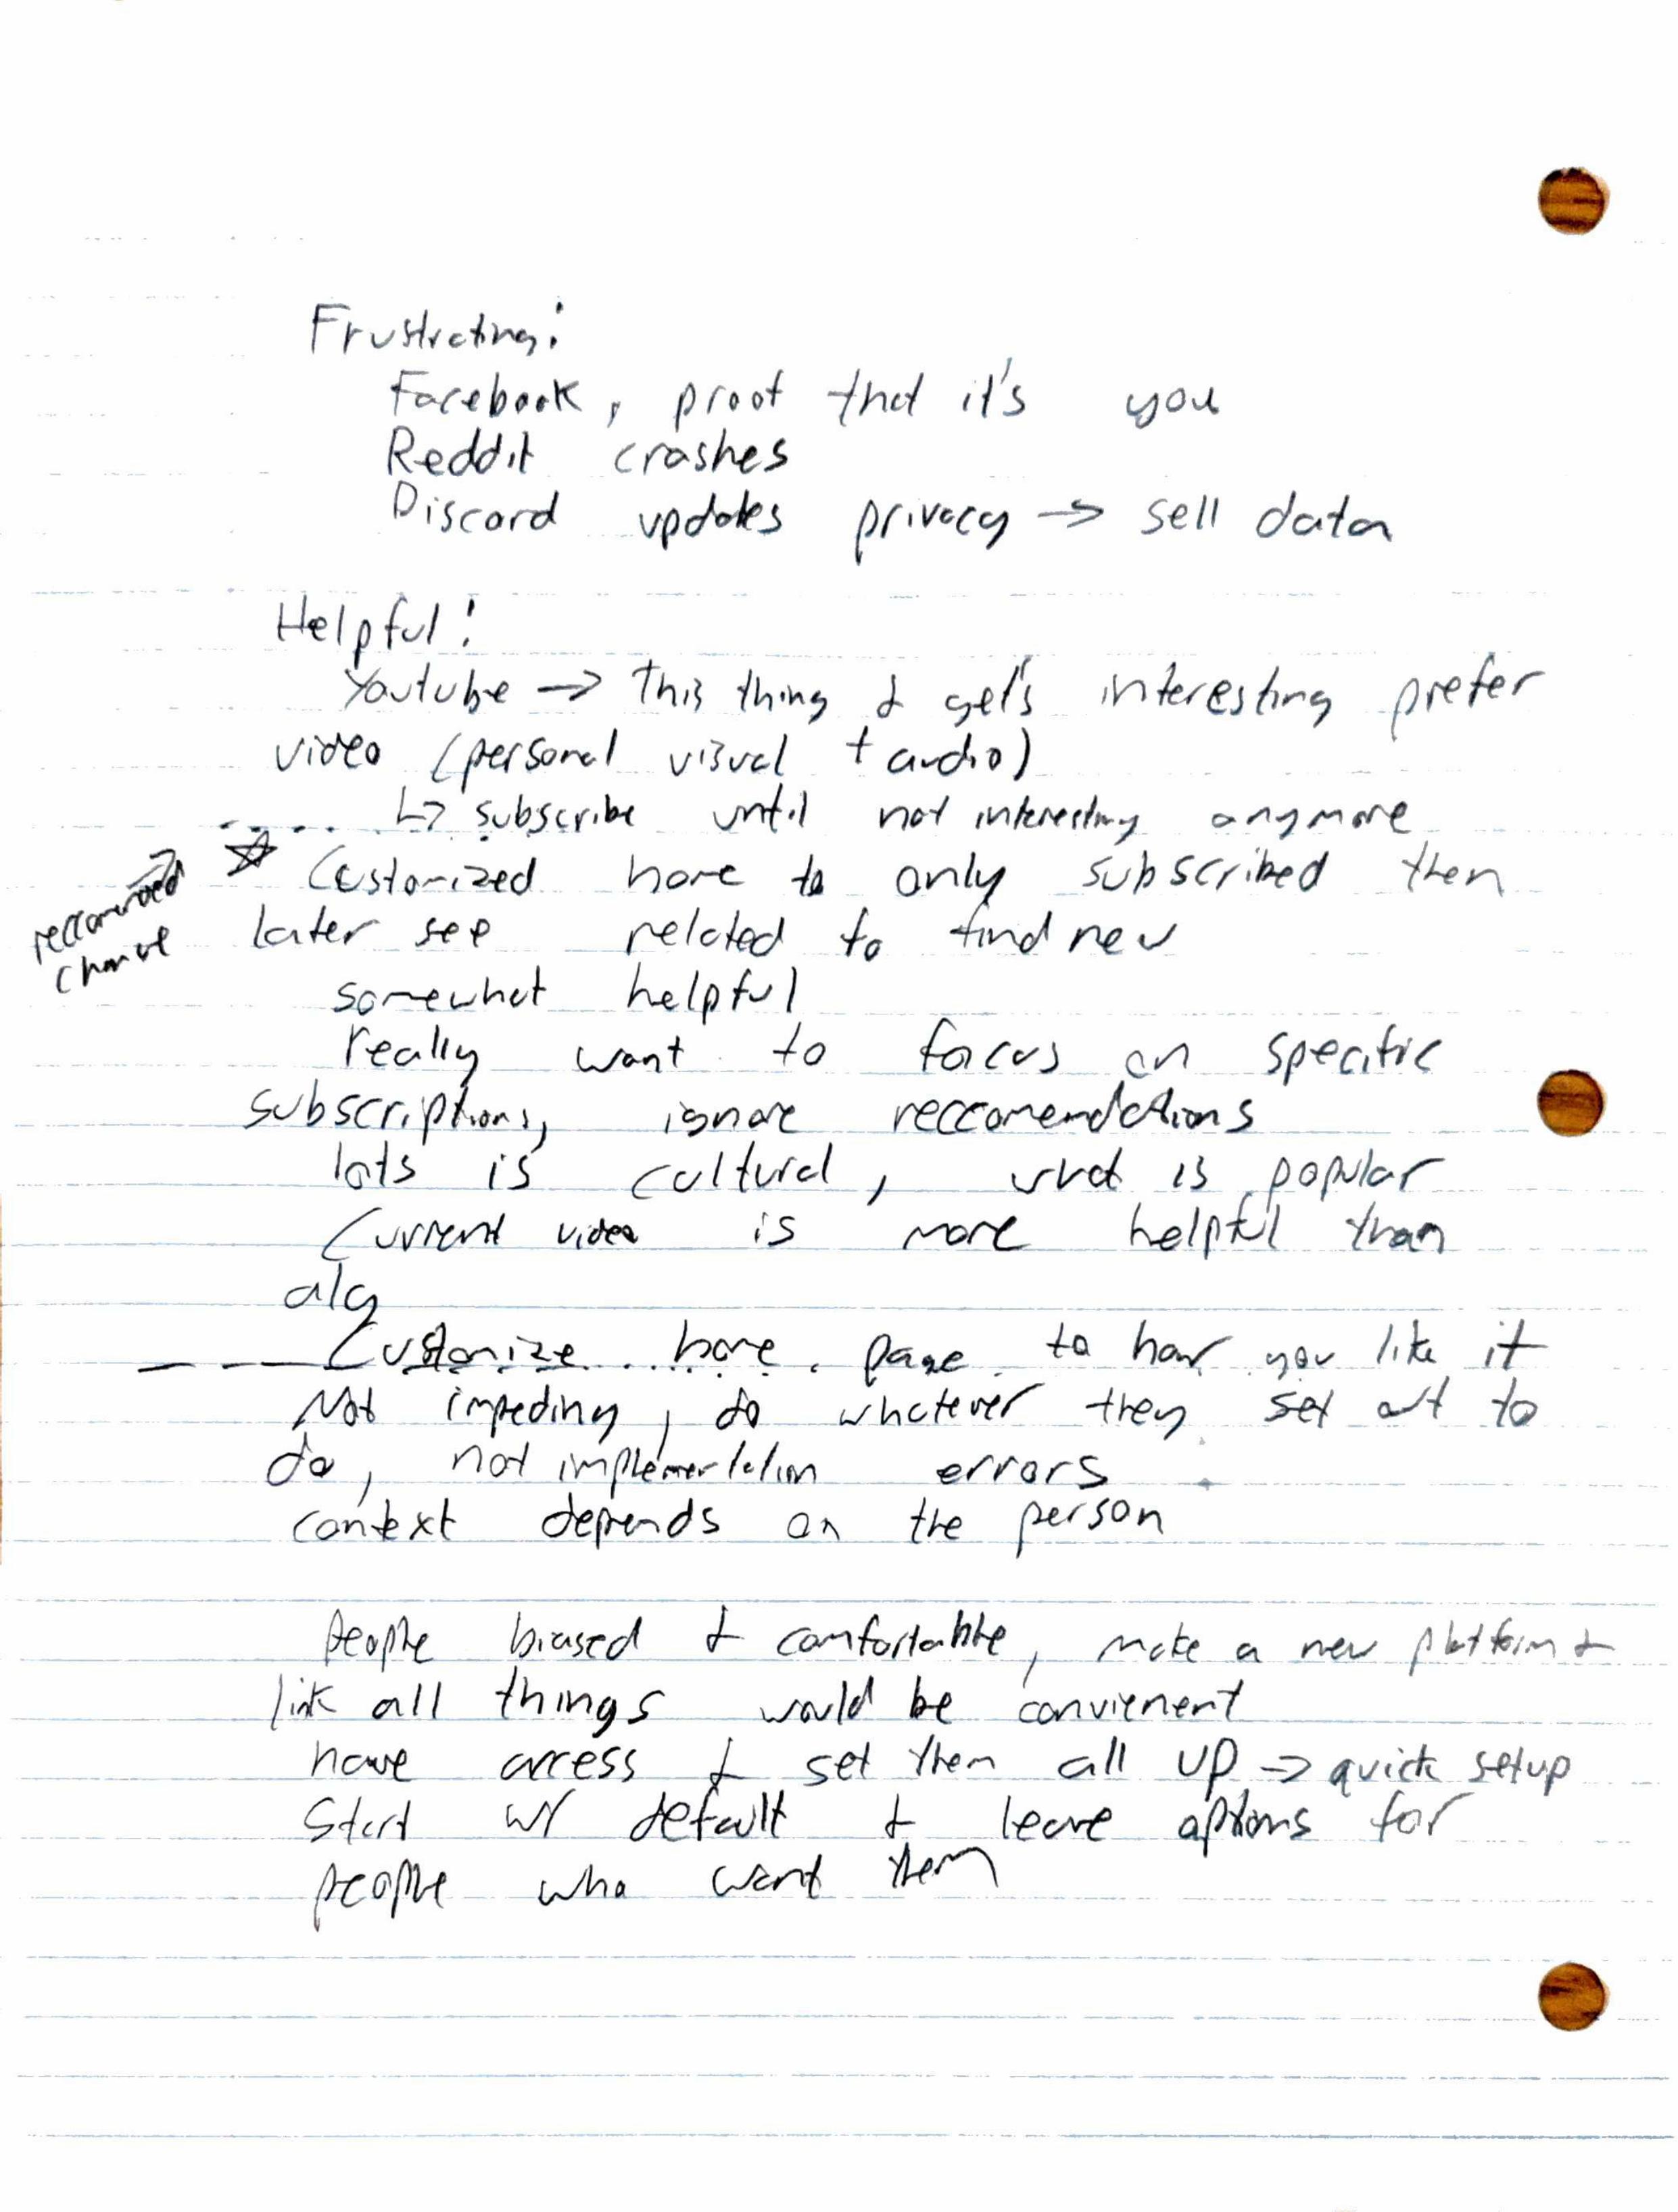 Frustrating:
Facebook, proof that it's you
Reddit crashes
Discord updates privacy → sell data
Helpful:
Youtube → This thing & get's interesting prefer
video (personal visual + audio)
↳ subscribe until not interesting anymore
☆ Customized home to only subscribed then
later see related to find new
reccomended
change
somewhat helpful
really want to focus on specific
subscriptions, ignore reccomendations
lots is cultural, what is popular
Current video is more helpful than
alg
Customize home page to how you like it
Not impeding, do whatever they set out to
do, not implementation errors
context depends on the person
people biased & comfortable, make a new platform &
link all things would be convienent
have access & set them all up → quick setup
Start w/ default & leave options for
people who want them